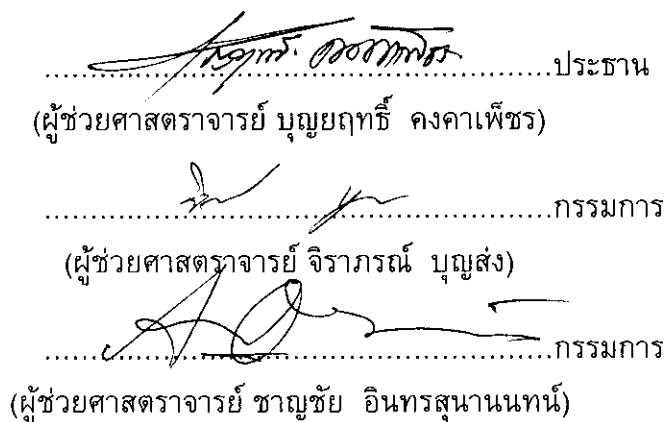 ......................................................ประธาน
(ผู้ช่วยศาสตราจารย์ บุญยฤทธิ์ คงคาเพ็ชร)
......................................................กรรมการ
(ผู้ช่วยศาสตราจารย์ จิราภรณ์ บุญส่ง)
......................................................กรรมการ
(ผู้ช่วยศาสตราจารย์ ชาญชัย อินทรสุนานนทน์)